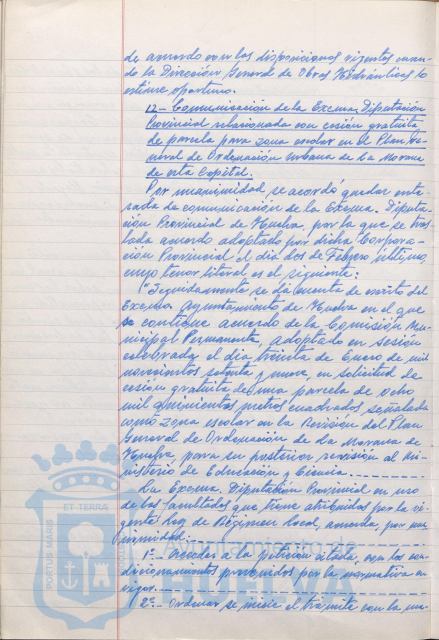 de acuerdo con las disposiciones vigentes cuan-
do la Dirección General de Obras Hidráulicas lo
estime oportuno.
12.- Comunicación de la Excma. Diputación
Provincial relacionada con cesión gratuita
de parcela para zona escolar en el Plan Ge-
neral de Ordenación urbana de la Morana
de esta Capital.
Por unanimidad se acordó quedar ente-
rada de comunicación de la Excma. Diputa-
ción Provincial de Huelva, por la que se tras
lada acuerdo adoptado por dicha Corpora-
ción Provincial el día dos de Febrero último,
cuyo tenor literal es el siguiente:
("Seguidamente se dá cuenta de escrito del
Excmo. Ayuntamiento de Huelva en el que
se contiene acuerdo de la Comisión Mu-
nicipal Permanente, adoptado en sesión
celebrada el día treinta de Enero de mil
novecientos setenta y nueve, en solicitud de
cesión gratuita de una parcela de ocho
mil quinientos metros cuadrados señalada
como zona escolar en la Revisión del Plan
General de Ordenación de La Morana de
Huelva para su posterior revisión al Mi-
nisterio de Educación y Ciencia.
La Excma. Diputación Provincial en uso
de las facultades que tiene atribuidas por la vi-
gente Ley de Régimen Local, acuerda, por una
nimidad:
1º.- Acceder a la petición citada, con los con-
dicionamientos prevenidos por la normativa en
vigor.
2º.- Ordenar se inicie el trámite con la ma-
PORTUS MARIS
ET TERRAE
Ayuntamiento de
HUELVA